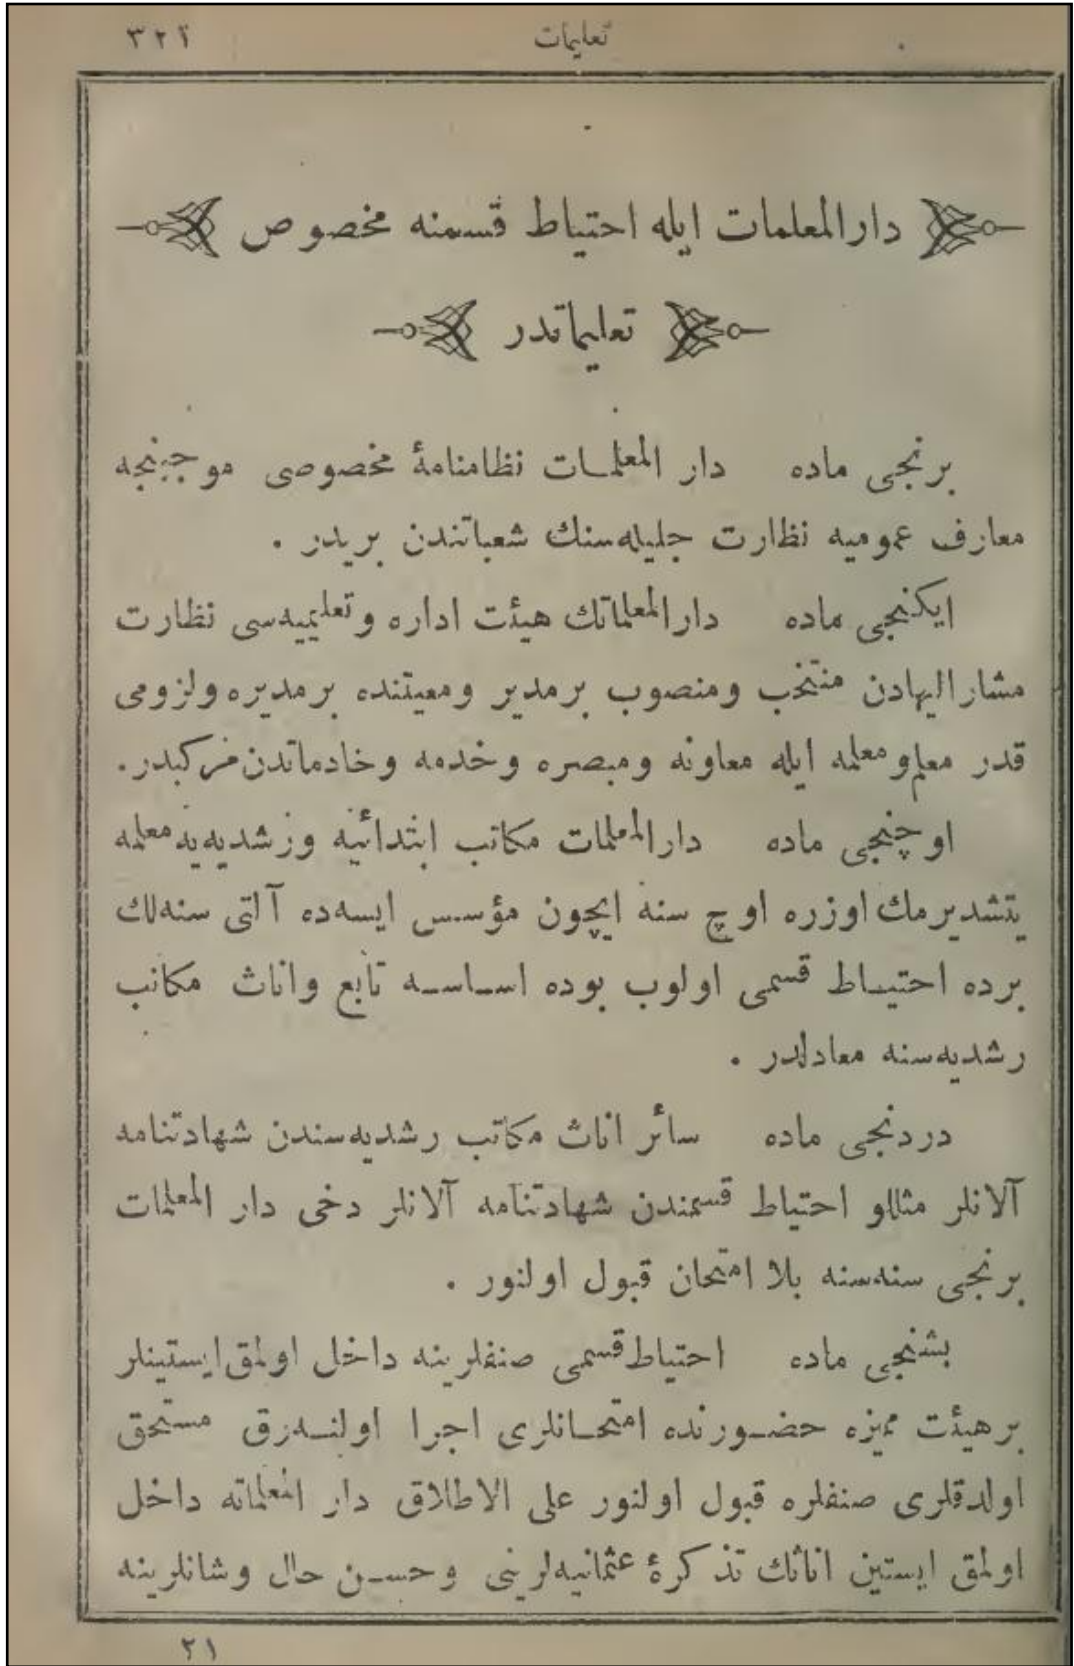 تعلیمات ٣٢١
دارالمعلمات ایله احتیاط قسمنه مخصوص
تعلیماتدر
برنجی ماده دار المعلمات نظامنامۀ مخصوصی موجبنجه
معارف عمومیه نظارت جلیله‌سنك شعباتندن بریدر .
ایکنجی ماده دارالمعلماتك هیئت اداره وتعلیمیه‌سی نظارت
مشارالیهادن منتخب ومنصوب برمدیر ومعیتنده برمدیره ولزومی
قدر معلم ومعلمه ایله معاونه ومبصره وخدمه وخادماتدن مرکبدر.
اوچنجی ماده دارالمعلمات مکاتب ابتدائیه ورشدیه‌یه معلمه
یتشدیرمك اوزره اوچ سنه ایچون مؤسس ایسه‌ده آلتی سنه‌لك
برده احتیاط قسمی اولوب بوده اساسه تابع واناث مکاتب
رشدیه‌سنه معادلدر .
دردنجی ماده سائر اناث مکاتب رشدیه‌سندن شهادتنامه
آلانلر مثللو احتیاط قسمندن شهادتنامه آلانلر دخی دار المعلمات
برنجی سنه‌سنه بلا امتحان قبول اولنور .
بشنجی ماده احتیاط قسمی صنفلرینه داخل اولمق ایستینلر
برهیئت ممیزه حضورنده امتحانلری اجرا اولنه‌رق مستحق
اولدقلری صنفلره قبول اولنور علی الاطلاق دار المعلماته داخل
اولمق ایستین اناثك تذکرۀ عثمانیه‌لرینی وحسن حال وشانلرینه
٢١